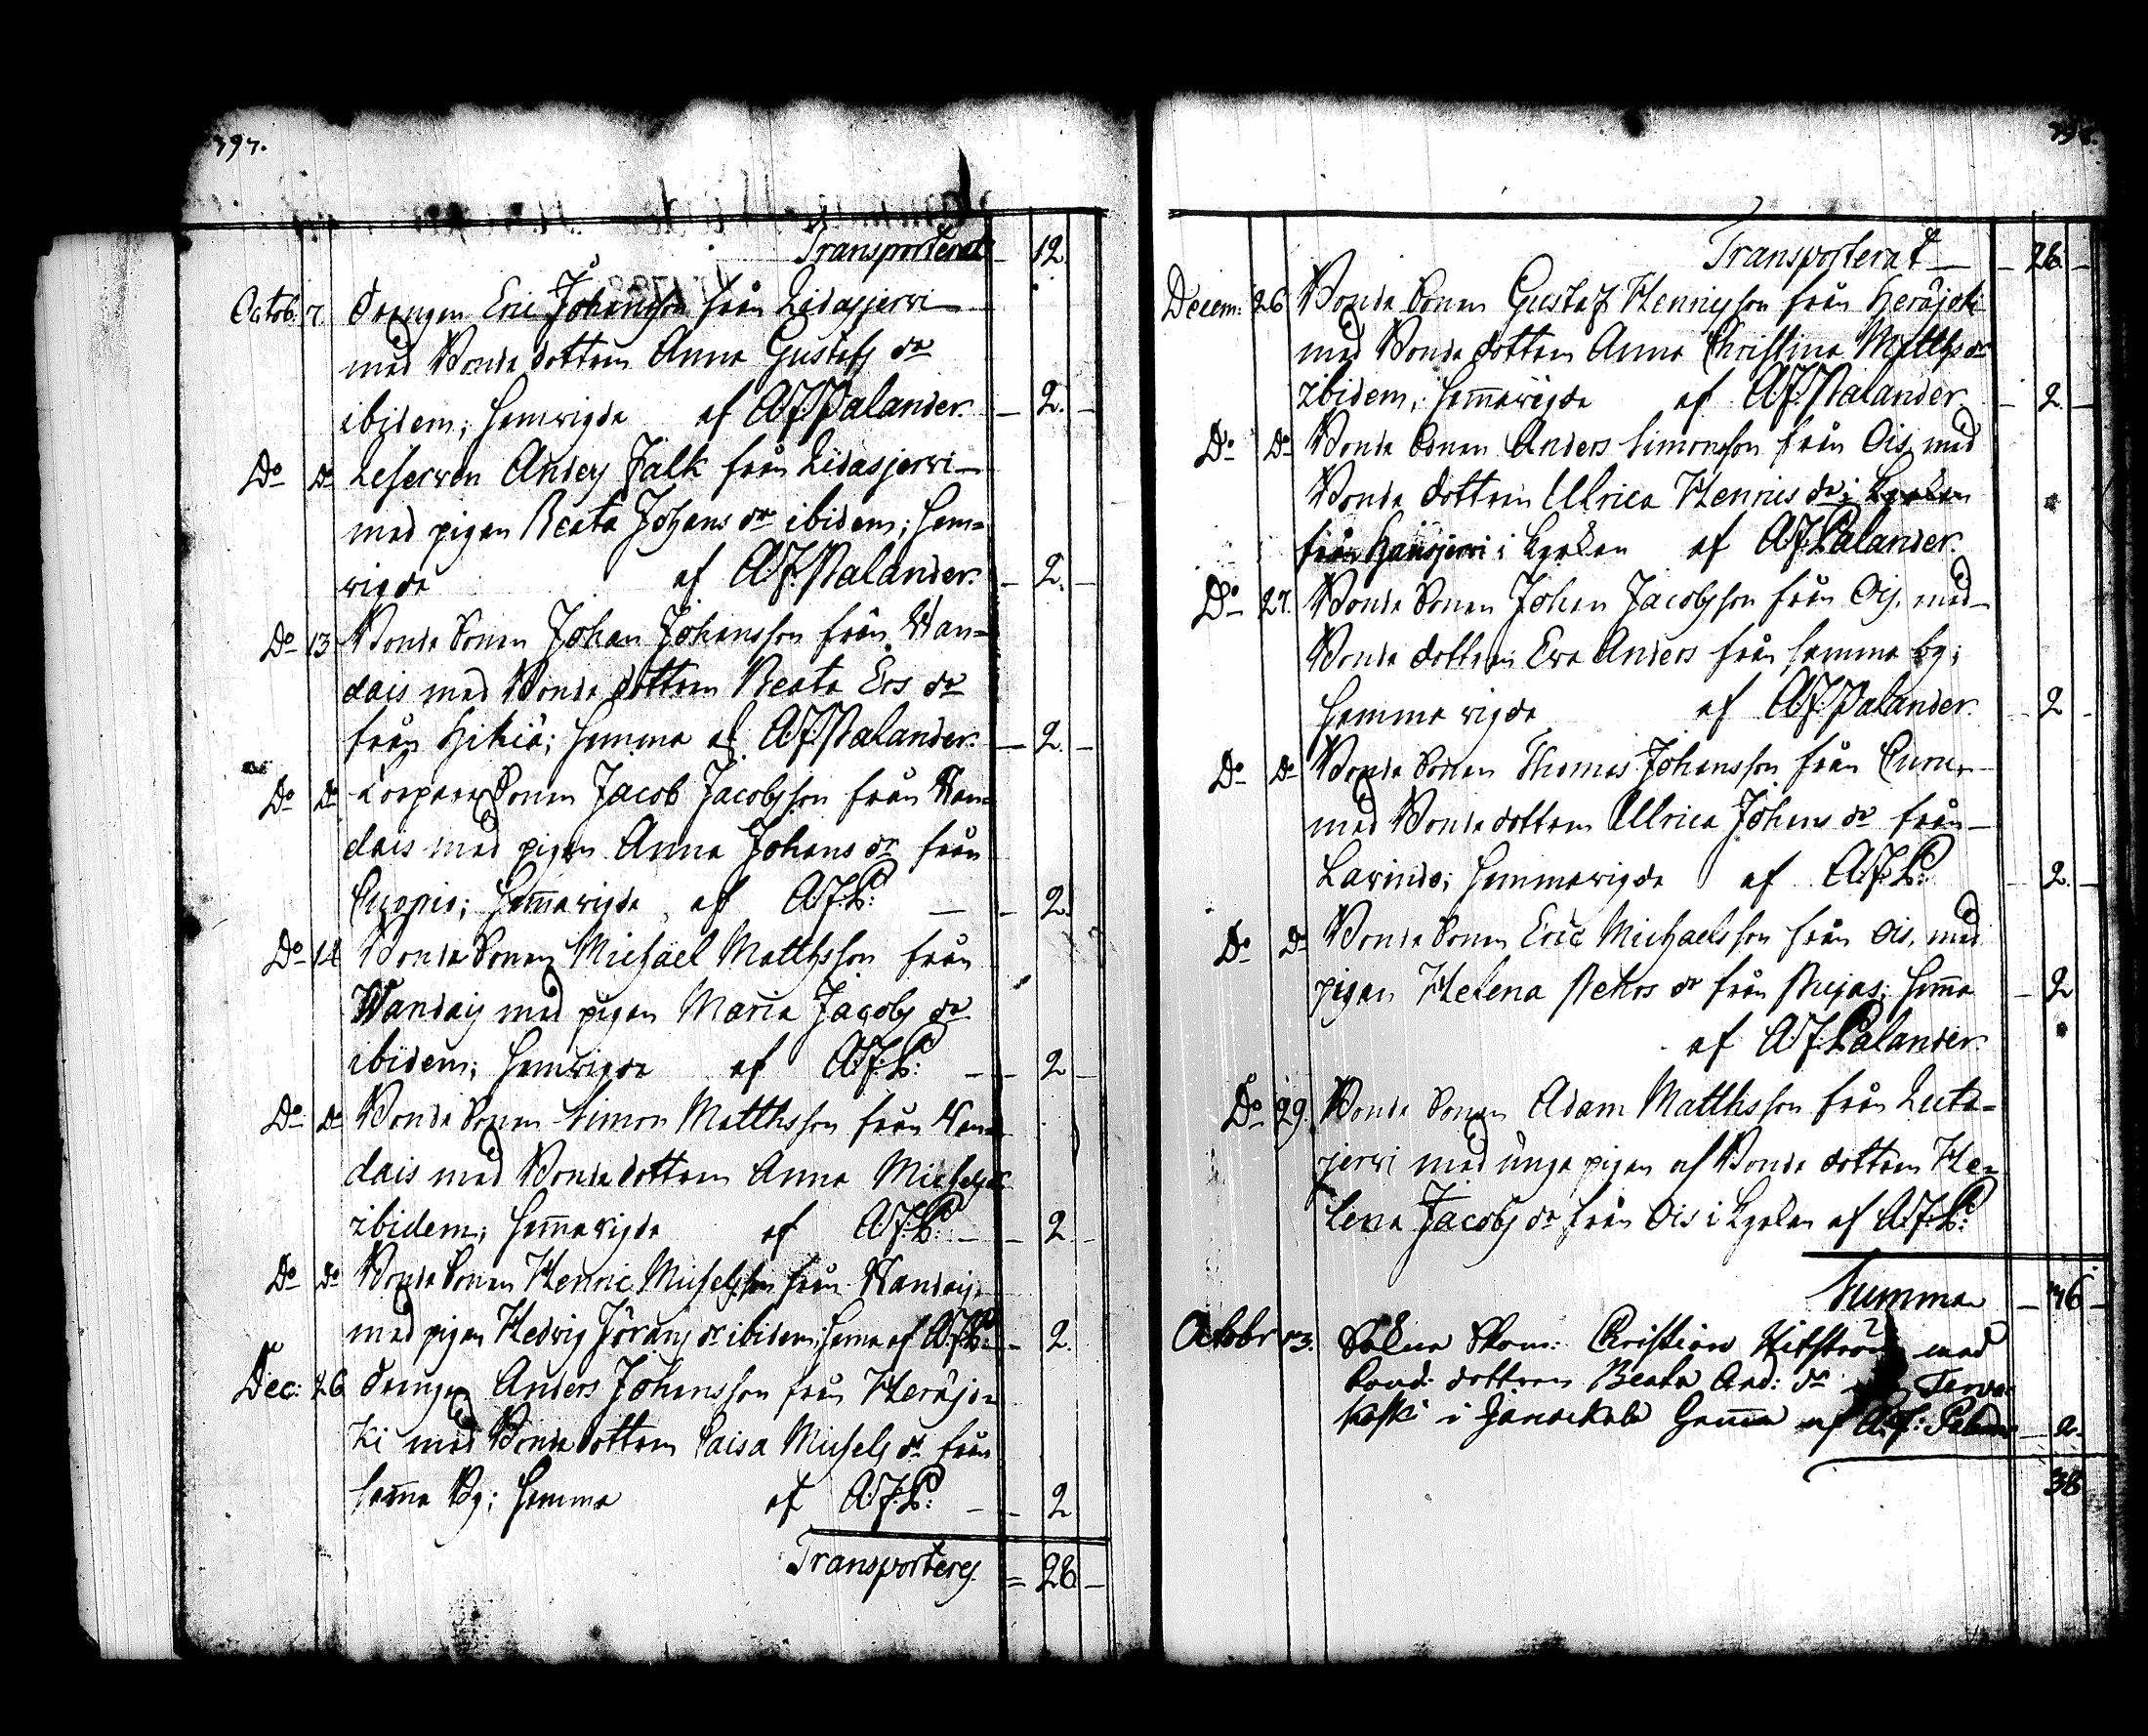 797.
Transporterat 12.
Octob: 7. Drengen Eric Johansson från Lidasjerwi
med Bonde dottren Anna Gustafs dr
ibidem; hemvigde af A:J:Palander. 2.
Do Do Reserven Anders Falk från Lidasjerwi
med pigan Beata Johans dr ibidem; hem=
vigde af A:J:Palander. 2.
Do 13 Bonde Sonen Johan Johansson från Wan=
dais med Bonde dottren Beata Ers dr
från Hikiä; hemma af A:J:Palander. 2.
Do Do Torpare Sonen Jacob Jacobsson från Wan=
dais med pigan Anna Johans dr från
hemmavigde af A:J:P: 2.
Do 14 Bonde Sonen Michael Matthsson från
Wandais med pigan Maria Jacobs dr
ibidem; hemvigde af A:J:P: 2
Do Do Bonde Sonen Simon Matthsson från Wan=
dais med Bonde dottren Anna Michels dr
ibidem; hem̄avigde af A:J:P: 2
Do Do Bonde Sonen Henric Michelsson från Wandais
med pigan Hedvig Jörans dr ibidem; hema af A:J:P: 2.
Dec: 26 Drengen Anders Johansson från Heräjo=
ki med Bonde dottren Caisa Michels dr från
sam̄a By; hemma af A:J:P: 2
Transporteres 26
798.
Transporterat 26
Decem: 26 Bonde Sonen Gustaf Henricsson från Heräjoki
med Bonde dottren Anna Christina Matths dr
ibidem; hem̄avigde af A:J:Palander. 2
Do Do Bonde Sonen Anders Simonsson från Ois med
Bonde dottren Ulrica Henrics dr i Kyrkan
från Hausjerwi i Kyrkan af A:J:Palander.
Do 27. Bonde Sonen Johan Jacobsson från Ois, med
Bonde dottren Eva Anders från samma by;
hemma vigde af A:J:Palander. 2
Do Do Bonde Sonen Thomas Johansson från
med Bonde dottren Ulrica Johans dr från
Lavinto; hemmavigde af A:J:P: 2.
Do Do Bonde Sonen Eric Michaelsson från Ois, med
pigan Helena Petters dr från Pujas; hem̄a 2
af A:J:Palander.
Do 29. Bonde Sonen Adam Matthsson från Luta=
jerwi med unga pigan af Bonde dottren He=
lena Jacobs dr från Ois i Kyrkan af A:J:P:
Summa 36
Octobr 13. Christian med
bond: dottren Beata And: dr Terva
koski i Janackala hem̄a af A:J: Paland 2.
38